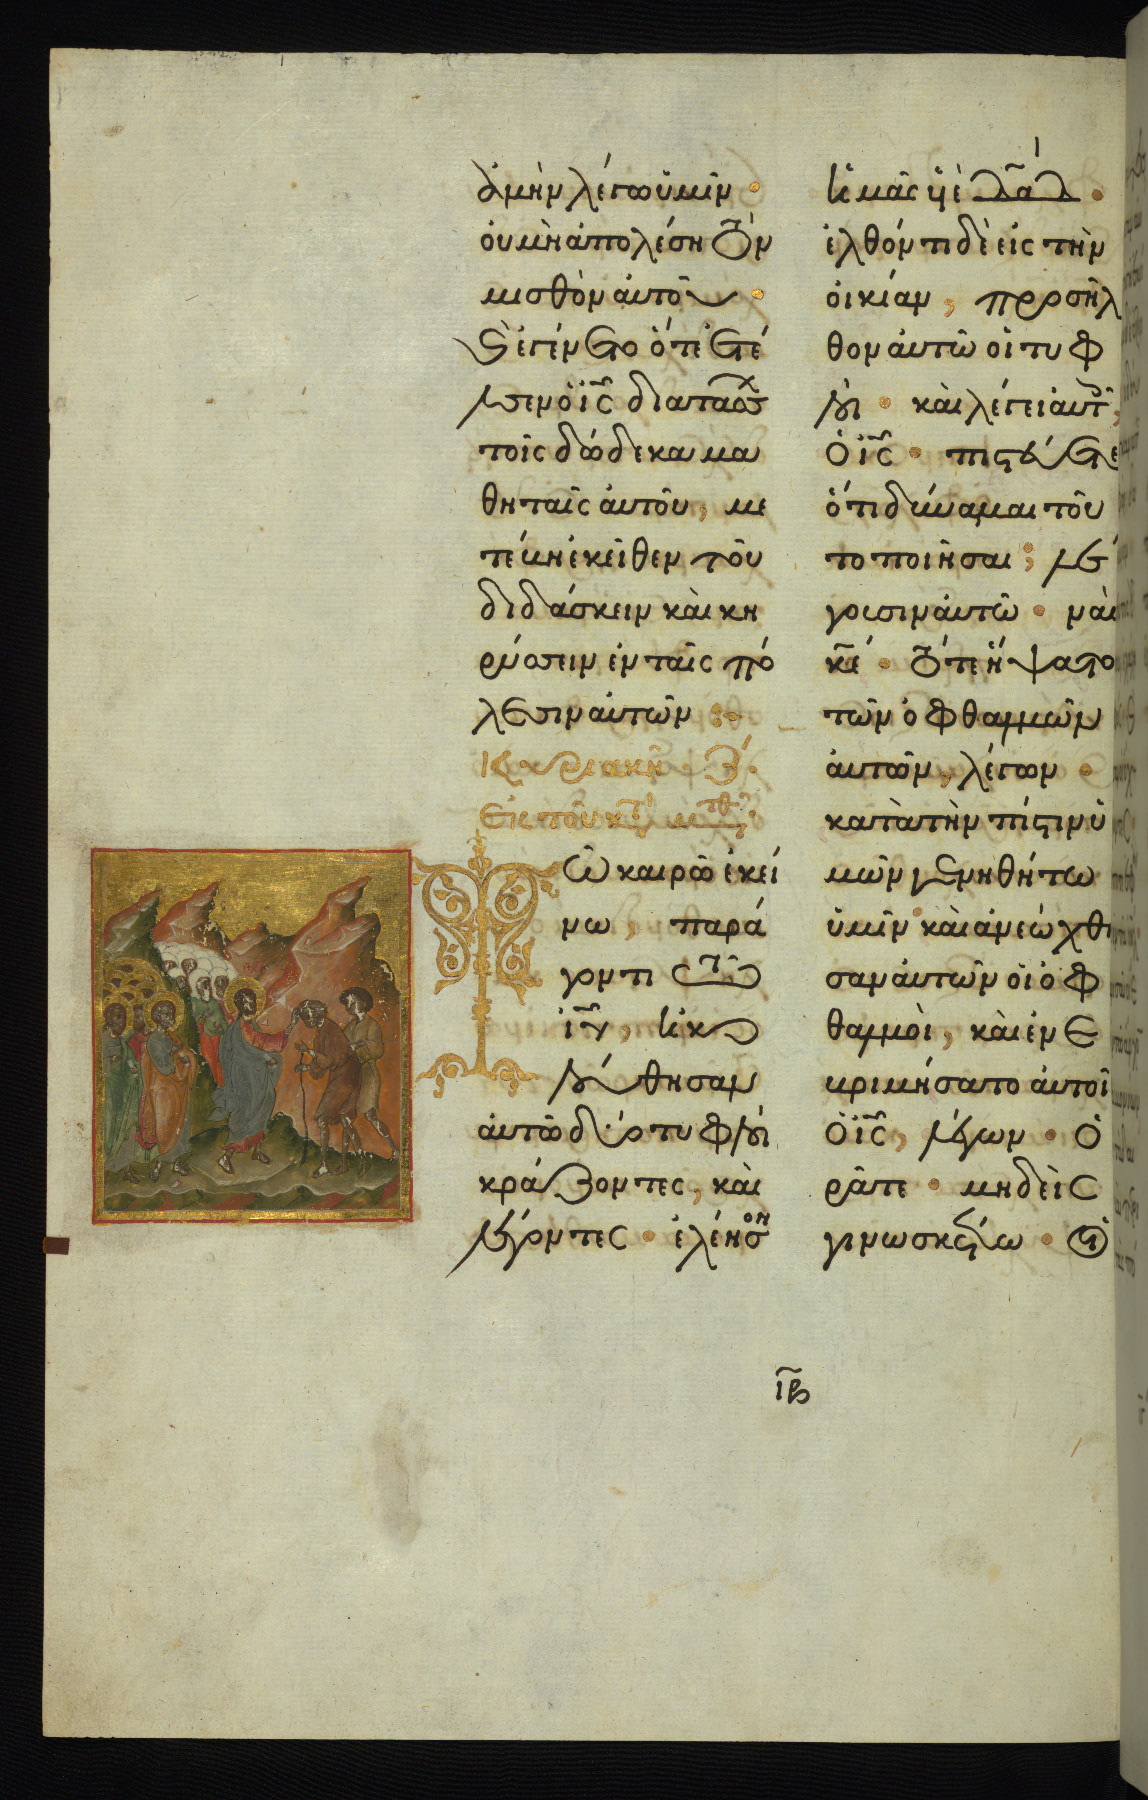 ἀμὴν λέγω ὑμῖν·
οὐ μὴ ἀπολέση τὸν
μισθὸν αὐτοῦ·
Καὶ ἐγένετο ὅτε ἐτέ
λεσεν ὁ ἰς̃ διατάσσων
τοῖς δώδεκα μα
θηταῖς αὐτοῦ, με
τέβη ἐκεῖθεν τοῦ
διδάσκειν καὶ κη
ρύσσειν ἐν ταῖς πό
λεσιν αὐτῶν:
Κυριακῆ ζ΄.
Ἐκ τοῦ κτ μτθ.
Τῶ καιρῶ ἐκεί
νω, παρά
γοντι τῶ
ἰυ̃, ἠκο
λούθησαν
αὐτῶ δύο τυφλοὶ
κράζοντες, καὶ
λέγοντες· ἐλέησον
ἡμᾶς υἱὲ δᾱδ·
ἐλθόντι δὲ εἰς τὴν
οἰκίαν, προσῆλ
θον αὐτῶ οἱ τυφ
λοὶ· καὶ λέγει αὐτοῖς,
ὁ ἰς̃· πιστεύετε
ὅτι δύναμαι τοῦ
το ποιῆσαι; λέ
γουσιν αὐτῶ· ναὶ
κε̃· τότε ἥψατο
τῶν ὀφθαλμῶν
αὐτῶν, λέγων·
κατὰ τὴν πίστιν ὑ
μῶν γενηθήτω
ὑμῖν· καὶ ἀνεώχθη
σαν αὐτῶν οἱ ὀφ
θαλμοὶ, καὶ ἐνε
βριμήσατο αὐτοῖς
ὁ ἰς̃, λέγων· ὁ
ρᾶτε· μηδεὶς
γινωσκέτω· οἱ
ιβ̃